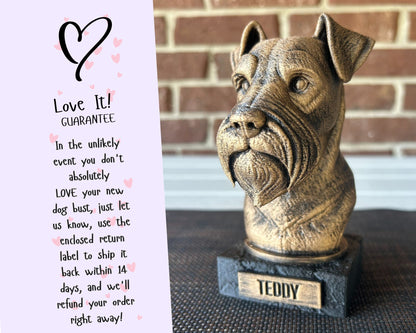 Love It!
GUARANTEE
In the unlikely
event you don't
absolutely
LOVE your new
dog bust, just let
us know, use the
enclosed return
label to ship it
back within 14
days, and we'll
refund your order
right away!
TEDDY